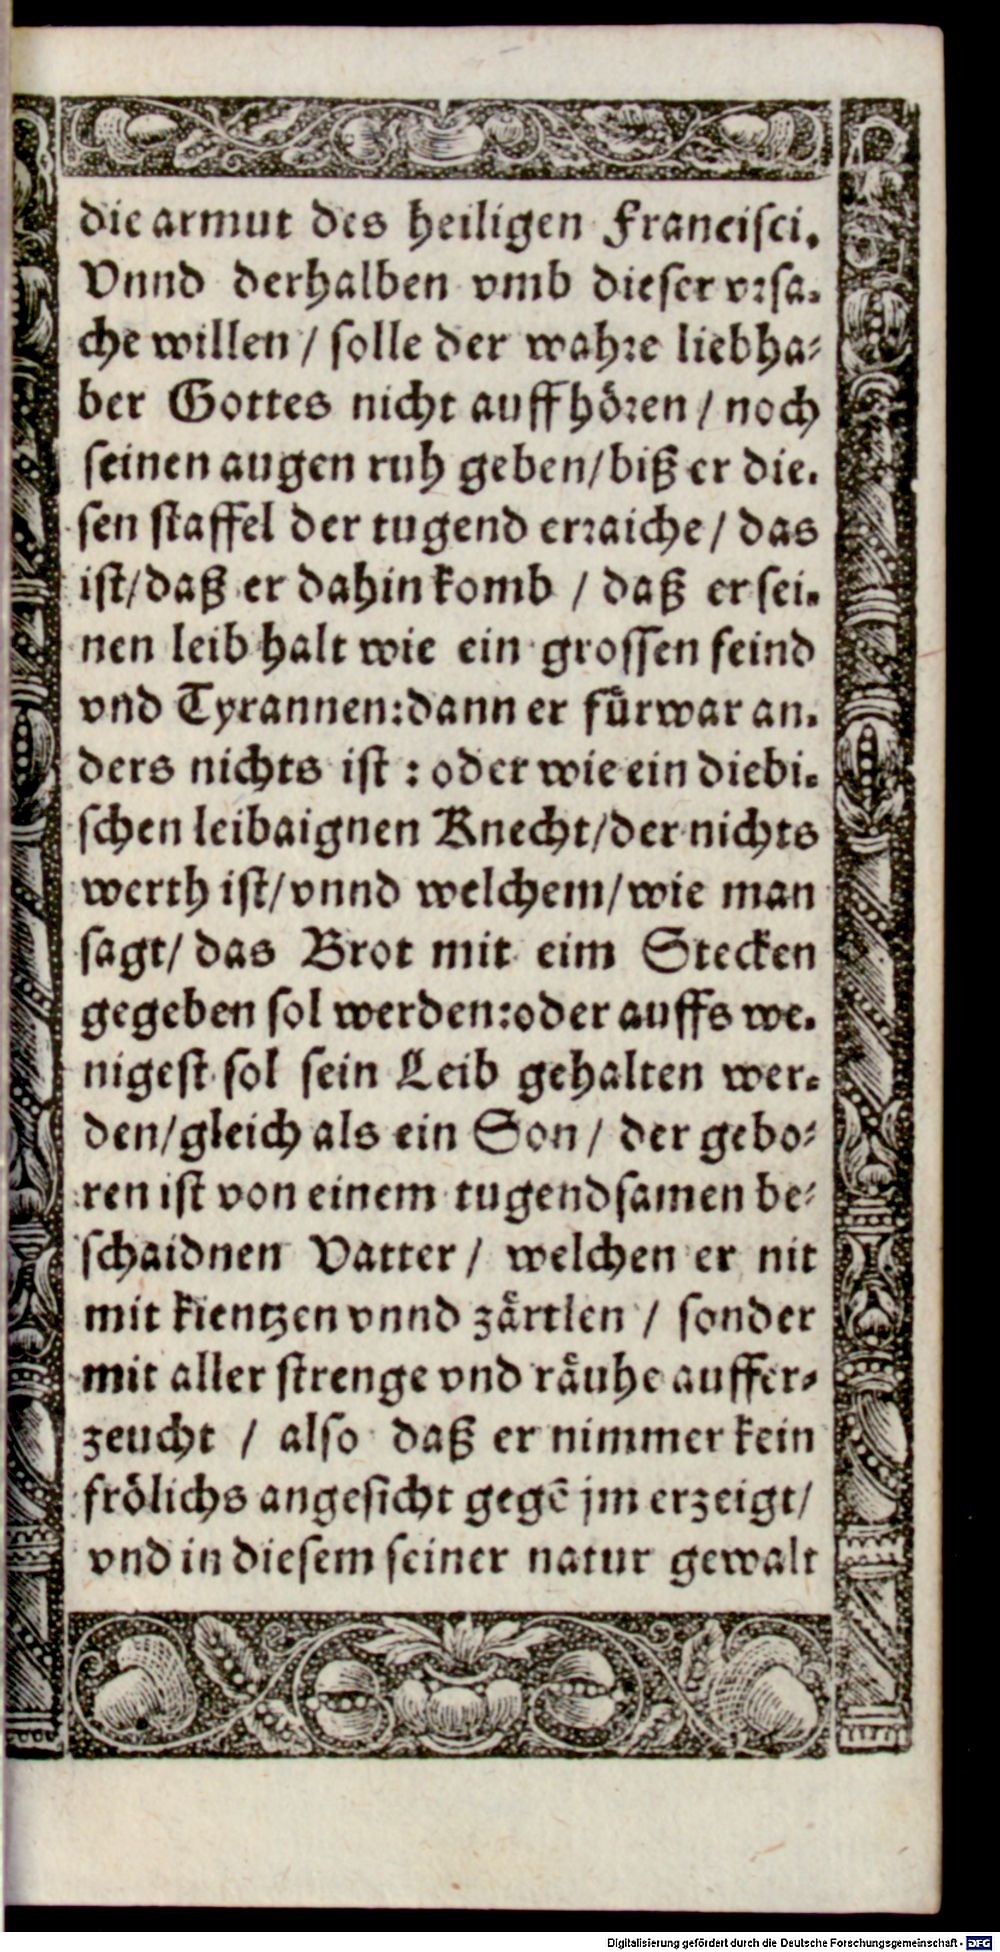 die armut des heiligen Francisci.
Vnnd derhalben vmb dieser vrsa-
che willen / solle der wahre liebha-
ber Gottes nicht auffhören / noch
seinen augen ruh geben / biß er die-
sen staffel der tugend erraiche / das
ist / daß er dahin komb / daß er sei-
nen leib halt wie ein grossen feind
vnd Tyrannen: dann er fuͤrwar an-
ders nichts ist : oder wie ein diebi-
schen leibaignen Knecht / der nichts
werth ist / vnnd welchem / wie man
sagt / das Brot mit eim Stecken
gegeben sol werden: oder auffs we-
nigest sol sein Leib gehalten wer-
den / gleich als ein Son / der gebo-
ren ist von einem tugendsamen be-
schaidnen Vatter / welchen er nit
mit kientzen vnnd zaͤrtlen / sonder
mit aller strenge vnd raͤuhe auffer-
zeucht / also daß er nimmer kein
froͤlichs angesicht gegē jm erzeigt /
vnd in diesem seiner natur gewalt
Digitalisierung gefördert durch die Deutsche Forschungsgemeinschaft - DFG